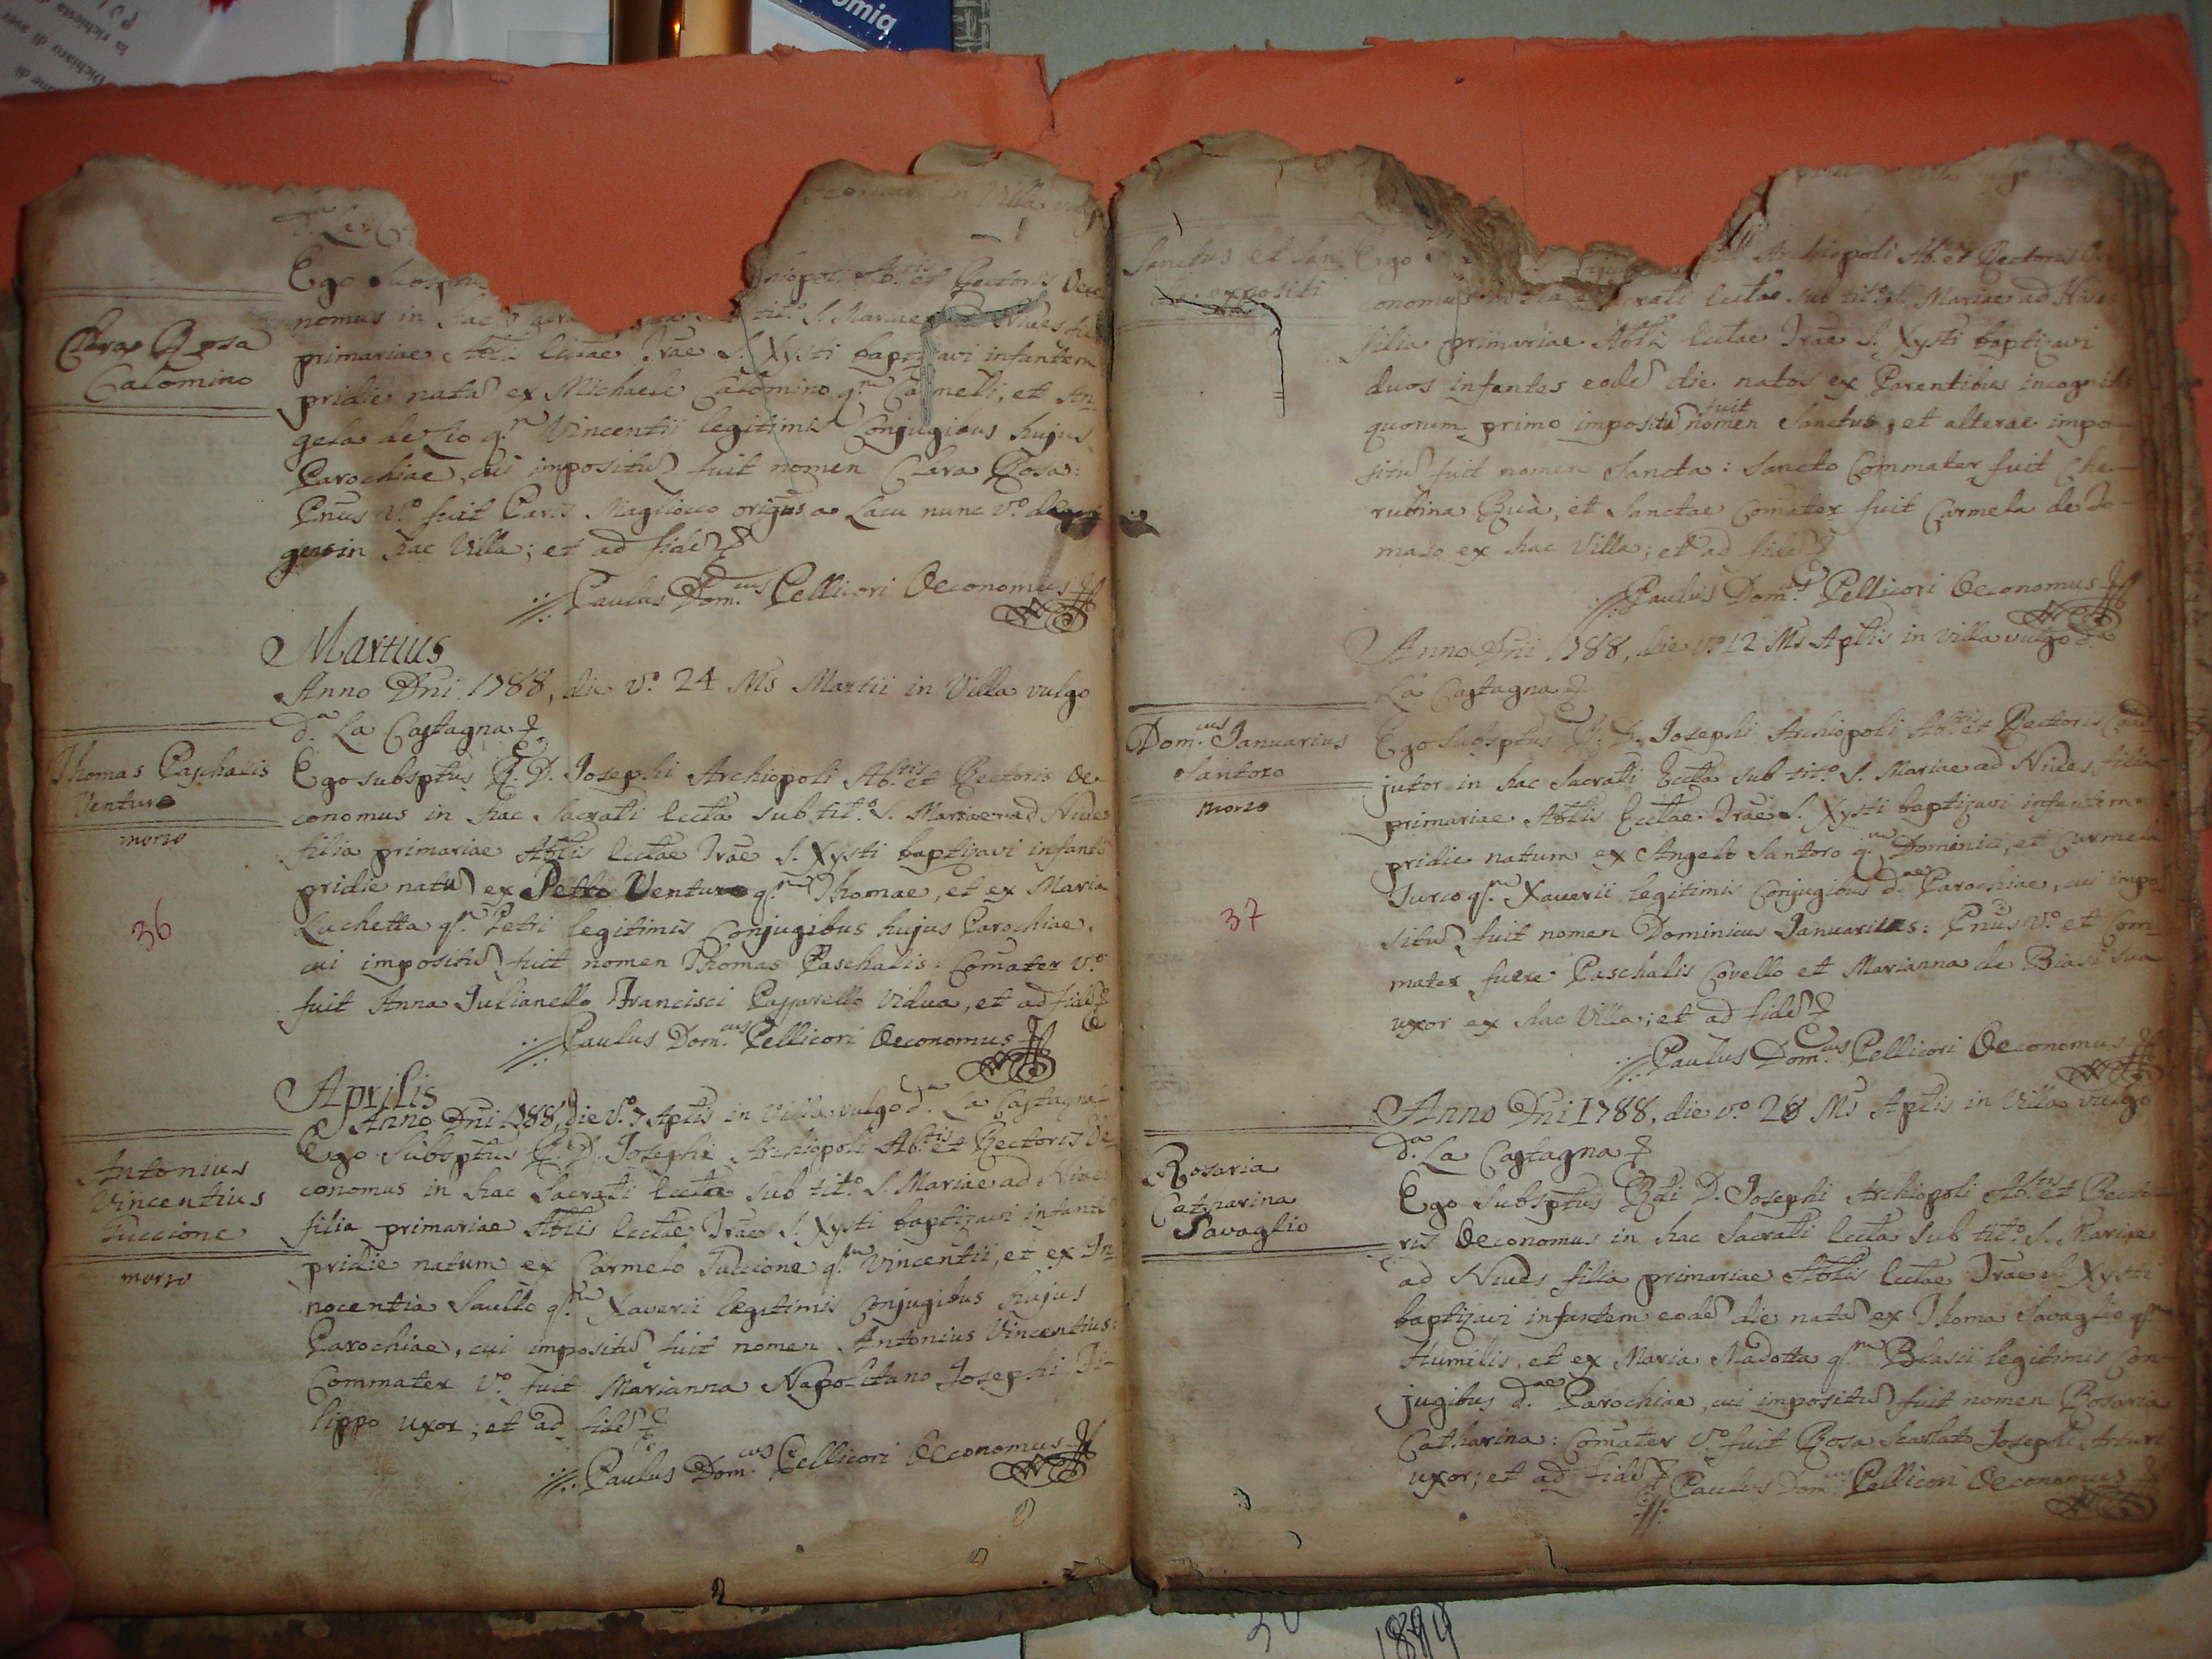 omiq
in Villa
Ego
Archiopoli Ab.tis et Rectoris Oeco
nomus in hac tit.o S. Mariae ad Nives fi
Clara Rosa
Calomino
primariae Abtlis Ecctae Trae S. Xysti baptizavi infantem
pridie natã ex Michaele Calomino q.m Carmeli, et An
gela de Zio q.m Vincentii legitimis Conjugibus hujus
Parochiae, cui impositũ fuit nomen Clara Rosa:
Pnus v.o fuit Magliocco a Lacu nunc v.o
gens in hac Villa; et ad fidẽ
Paulus Dom.cus Pellicori Oeconomus
Martius
Anno Dni 1788, die v.o 24 Ms Martii in Villa vulgo
d.a La Castagna
Thomas Paschalis
Venturo
morto
Ego subsptus R. D. Josephi Archiopoli Ab.tis et Rectoris Oe
conomus in hac Sacrati Eccta sub tit.o S. Mariae ad Nives
filia primariae Abtlis Ecctae Trae S. Xysti baptizavi infantẽ
pridie natũ ex Petro Venturo q.m Thomae, et ex Maria
Luchetta q.m Petri legitimis Conjugibus hujus Parochiae,
cui impositũ fuit nomen Thomas Paschalis: Comater v.o
fuit Anna Iulianello Francisci vidua, et ad fidẽ
Paulus Dom.cus Pellicori Oeconomus
36
Aprilis
Anno Dni 1788, die v.o 7 Aplis in Villa vulgo d.a La Castagna
Antonius
Vincentius
Tuccione
morto
Ego Subsptus R. D. Josephi Archiopoli Ab.tis et Rectoris Oe
conomus in hac Sacrati Eccta sub tit.o S. Mariae ad Nives
filia primariae Abtlis Ecctae Trae S. Xysti baptizavi infantẽ
pridie natum ex Carmelo Tuccione q.m Vincentii, et ex In
nocentia Saullo q.m Xaverii legitimis Conjugibus hujus
Parochiae, cui impositũ fuit nomen Antonius Vincentius:
Commater v.o fuit Marianna Napolitano Josephi Fi
lippo uxor; et ad fidẽ
Paulus Dom.cus Pellicori Oeconomus
Sanctus et San
expositi
Ego Archiopoli Ab.tis et Rectoris Oe
conomus in hac Sacrati Eccta sub tit.o S. Mariae ad Nives
filia primariae Abtlis Ecctae Trae S. Xysti baptizavi
duos infantes eodẽ die natos ex Parentibus incognitis
quorum primo impositũ fuit nomen Sanctus, et alterae impo
situ fuit nomen Sancta: Sancto Commater fuit Che
rubina Ruà, et Sanctae Comater fuit Carmela de To
maso ex hac Villa; et ad fidẽ
Paulus Dom.cus Pellicori Oeconomus
Anno Dni 1788, die v.o 12 Ms Aplis in villa vulgo d.a
La Castagna
Dom.cus Ianuarius
Santoro
morto
Ego Subsptus R. D. Josephi Archiopoli Ab.tis et Rectoris Coad
jutor in hac Sacrati Eccta sub tit.o S. Mariae ad Nives filia
primariae Abtlis Ecctae Trae S. Xysti baptizavi infantem
pridie natum ex Angelo Santoro q.m Dominici, et Carmela
Turco q.m Xaverii legitimis Conjugibus d.ae Parochiae, cui impo
situ fuit nomen Dominicus Ianuarius: Pnus v.o et Com
mater fuere Paschalis Covello et Marianna de Biasi sua
uxor ex hac Villa; et ad fidẽ
Paulus Dom.cus Pellicori Oeconomus
37
Anno Dni 1788, die v.o 28 Ms Aplis in Villa vulgo
d.a La Castagna
Rosaria
Catharina
Savaglio
Ego Subsptus Rdi D. Josephi Archiopoli Ab.tis et Recto
ris Oeconomus in hac Sacrati Eccta sub tit.o S. Mariae
ad Nives filia primariae Abtlis Ecctae Trae S. Xysti
baptizavi infantem eodẽ die natã ex Thoma Savaglio q.m
Humilis, et ex Maria Madotta q.m Blasii legitimis Con
jugibus d.ae Parochiae, cui impositũ fuit nomen Rosaria
Catharina: Comater v.o fuit Rosa Scarlato Josephi Arturi
uxor; et ad fidẽ Paulus Dom.cus Pellicori Oeconomus